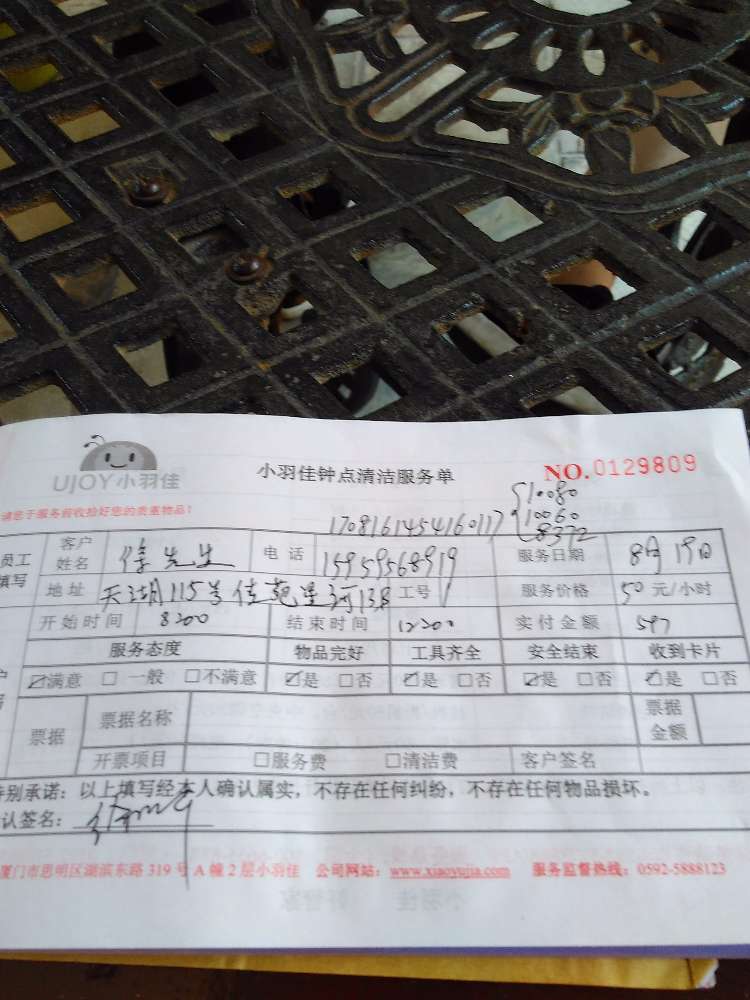 UJOY小羽佳
小羽佳钟点清洁服务单
NO.0129809
请您于服务前收拾好您的贵重物品!
10080
1708161454160117
10060
8372
员工
填写
客户
姓名
徐先生
电 话
15959568919
服务日期
8月19日
地 址
天湖115号佳苑星河13B
工号
服务价格
50 元/小时
开始时间
8:00
结束时间
12:00
实付金额
服务态度
物品完好
工具齐全
安全结束
收到卡片
☑满意 □ 一般 □不满意
☑是 □否
☑是 □否
☑是 □否
☑是 □否
票据
票据名称
票据
金额
开票项目
□服务费
□清洁费
客户签名
特别承诺:以上填写经本人确认属实,不存在任何纠纷,不存在任何物品损坏。
认签名:
厦门市思明区湖滨东路 319 号 A 幢 2 层小羽佳 公司网站:www.xiaoyujia.com 服务监督热线:0592-5888123